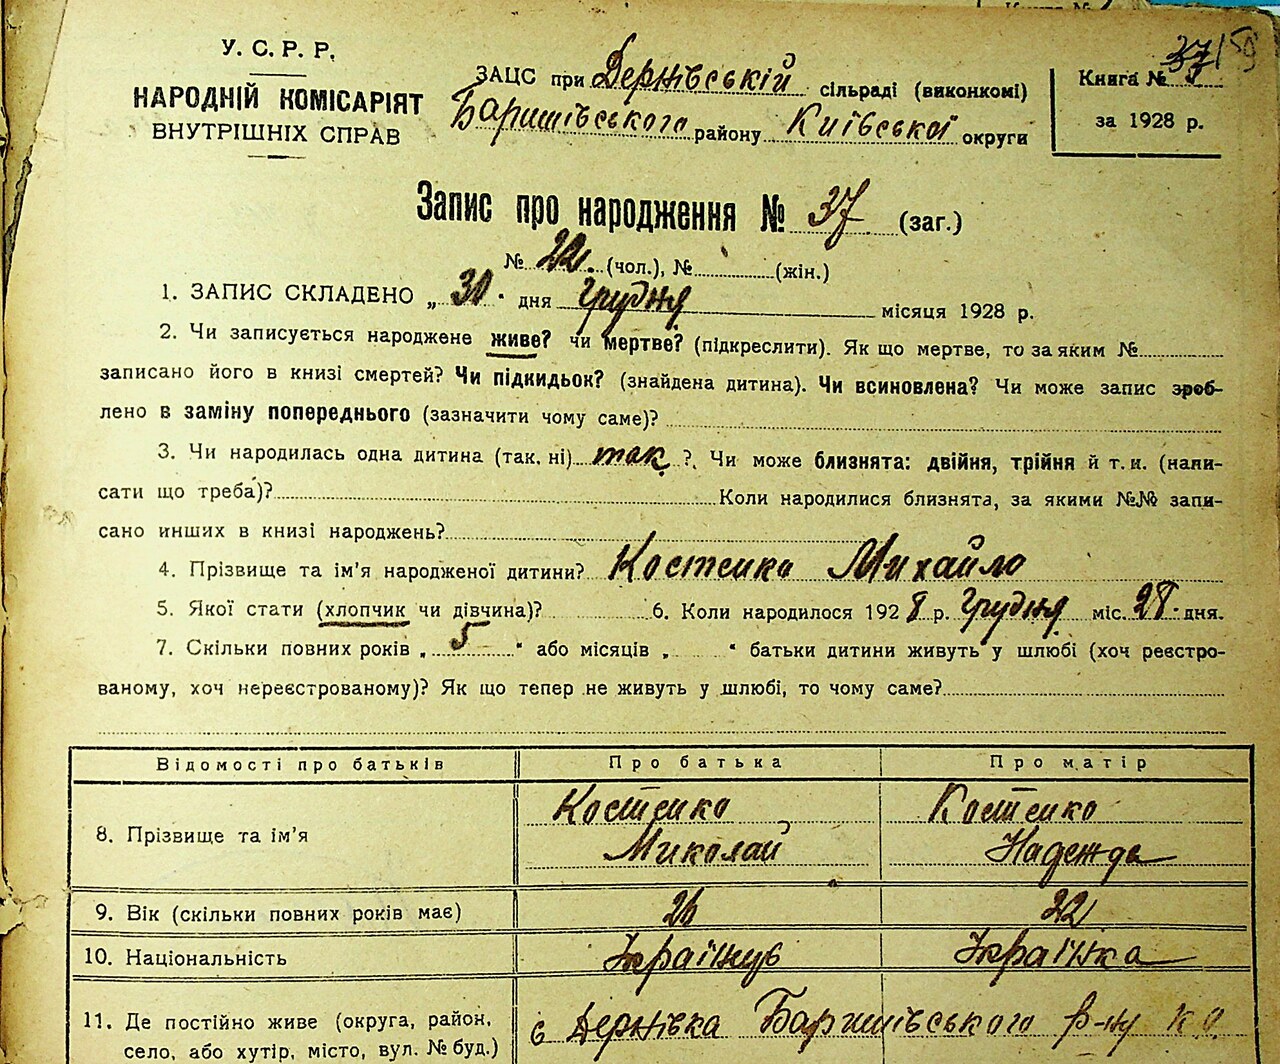 У. С. Р. Р.
НАРОДНІЙ КОМІСАРІЯТ
ВНУТРІШНІХ СПРАВ
ЗАЦС при Дернівській сільраді (виконкомі)
Баришівського району Київської округи
Книга №
за 1928 р.
Запис про народження № 37 (заг.)
№ 22. (чол.), № (жін.)
1. ЗАПИС СКЛАДЕНО „ 30 " дня Грудня місяця 1928 р.
2. Чи записується народжене живе? чи мертве? (підкреслити). Як що мертве, то за яким №
записано його в книзі смертей? Чи підкидьок? (знайдена дитина). Чи всиновлена? Чи може запис зроб-
лено в заміну попереднього (зазначити чому саме)?
3. Чи народилась одна дитина (так, ні) так ?. Чи може близнята: двійня, трійня й т. и. (напи-
сати що треба)? Коли народилися близнята, за якими №№ запи-
сано инших в книзі народжень?
4. Прізвище та ім'я народженої дитини? Костенко Михайло
5. Якої стати (хлопчик чи дівчина)? 6. Коли народилося 1928 р. Грудня міс. 28. дня.
7. Скільки повних років „ 5 " або місяців „ " батьки дитини живуть у шлюбі (хоч реєстро-
ваному, хоч нереєстрованому)? Як що тепер не живуть у шлюбі, то чому саме?
Відомості про батьків Про батька Про матір
8. Прізвище та ім'я Костенко Миколай Костенко Надежда
9. Вік (скільки повних років має) 26 22
10. Національність Українць Українка
11. Де постійно живе (округа, район,
село, або хутір, місто, вул. № буд.)
с Дернівка Баришівського р-ну К о